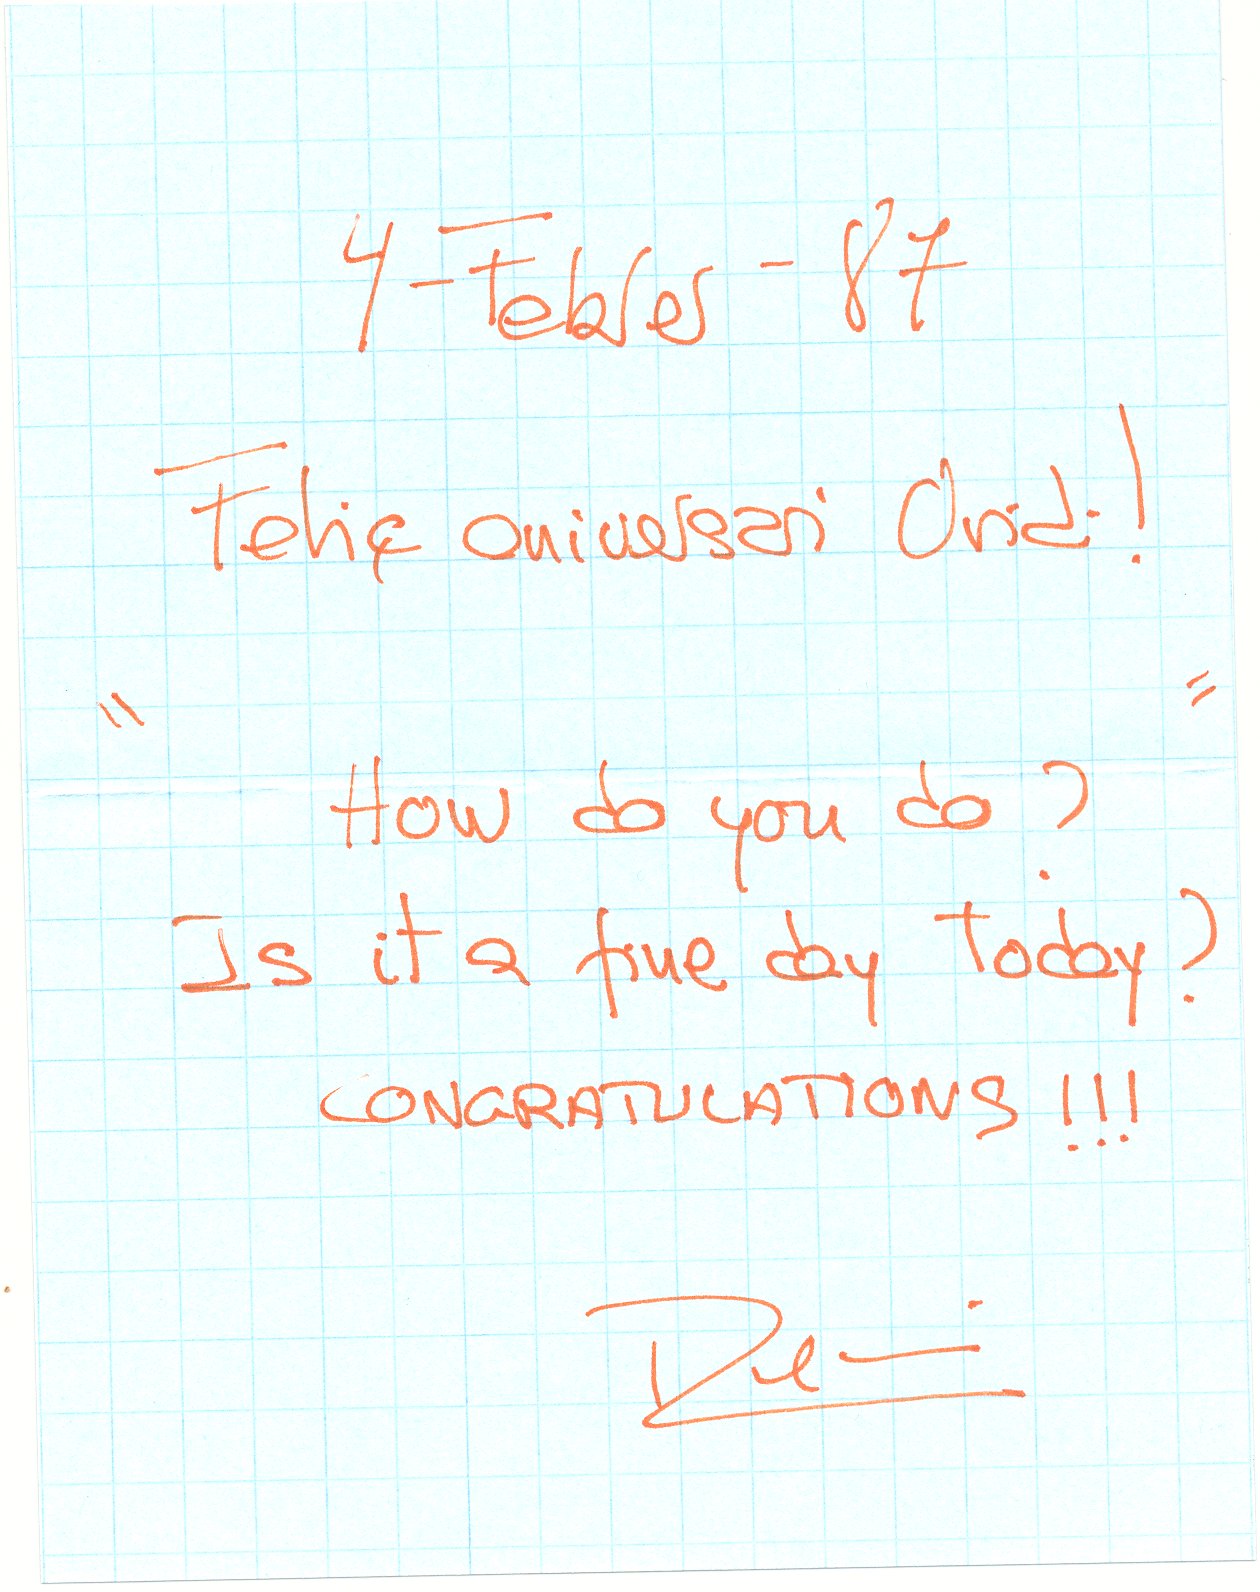 4-Febrer-87
Feliç aniversari Oriol!
"                "
How do you do?
Is it a fine day today?
CONGRATULATIONS!!!